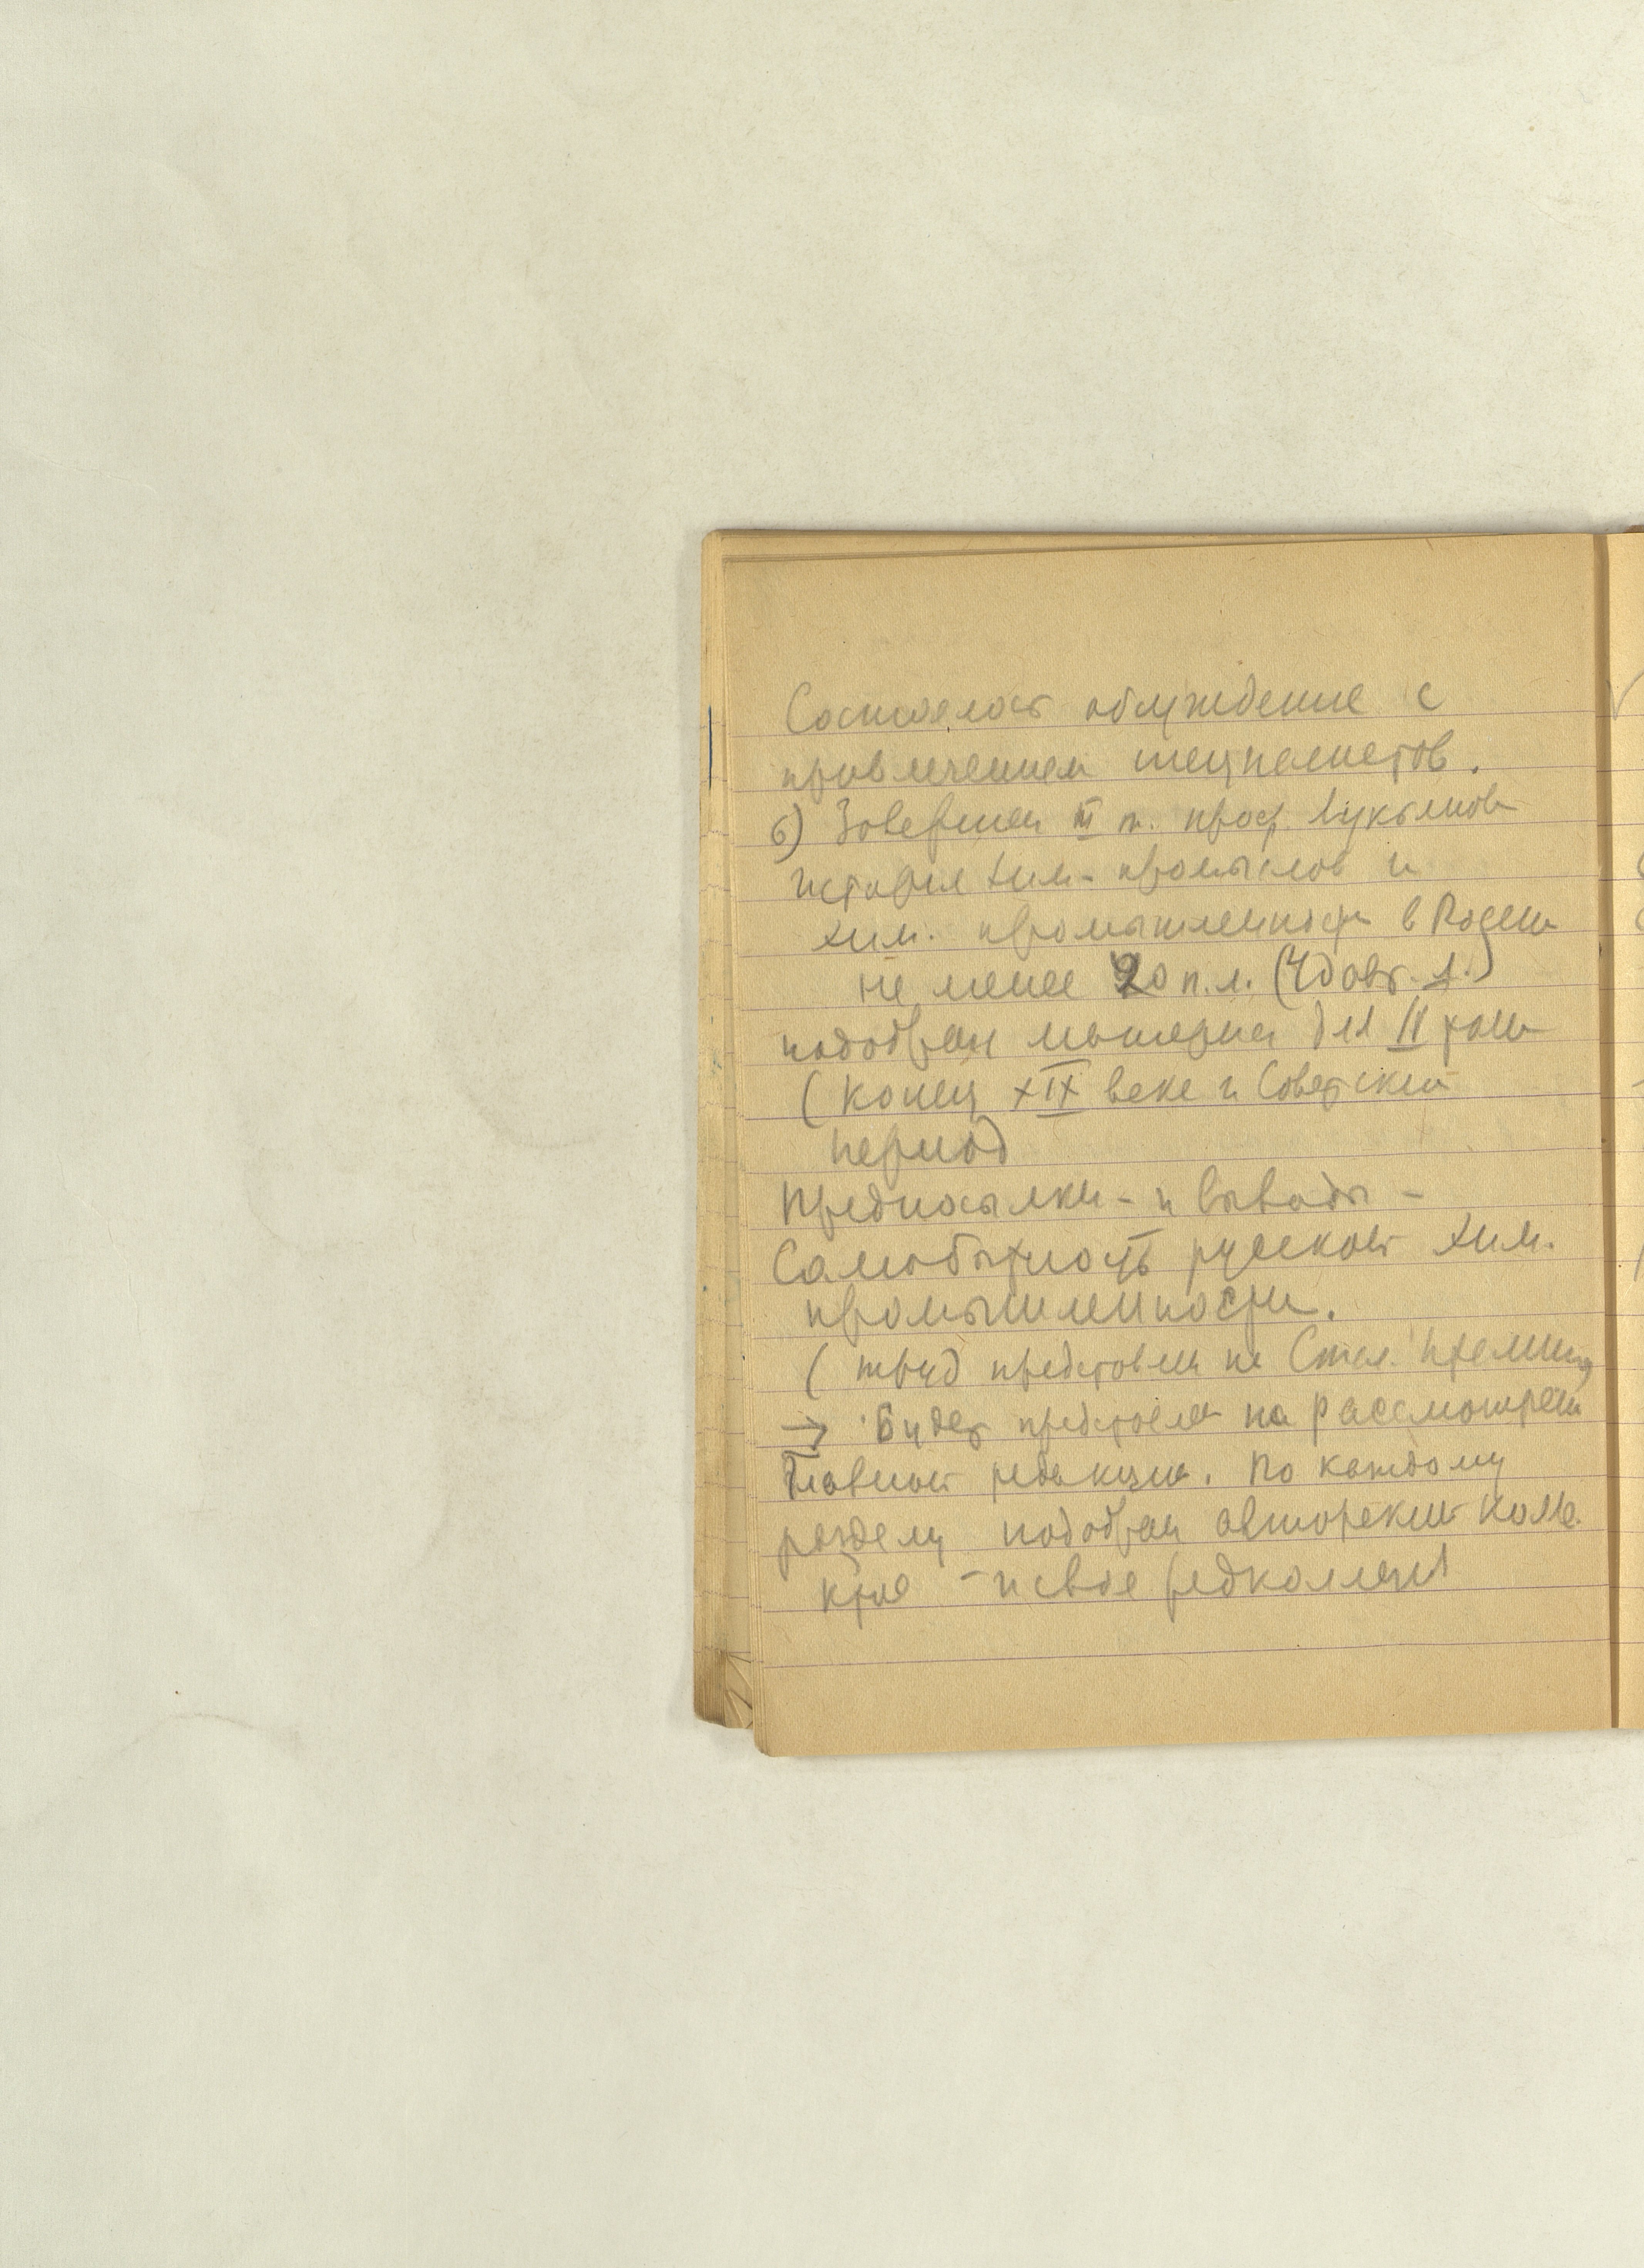 Состоялось обсуждение с
привлечением специалистов.
б) Завершен III т. проф. Лукьянова
История хим. промыслов и
хим. промышленности в России
не менее 20 п.л. (40 авт. л.)
подобран материал для IV тома
(конец XIX века и Советский
период
Предпосылки - и выводы -
Самобытность русской хим.
промышленности.
(труд представлен на Стал. премию
→ Будет представлен на рассмотрен
Главной редакции. По каждому
разделу подобран авторский колле
ктив - и своя редколлегия